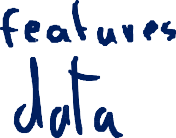 features
data